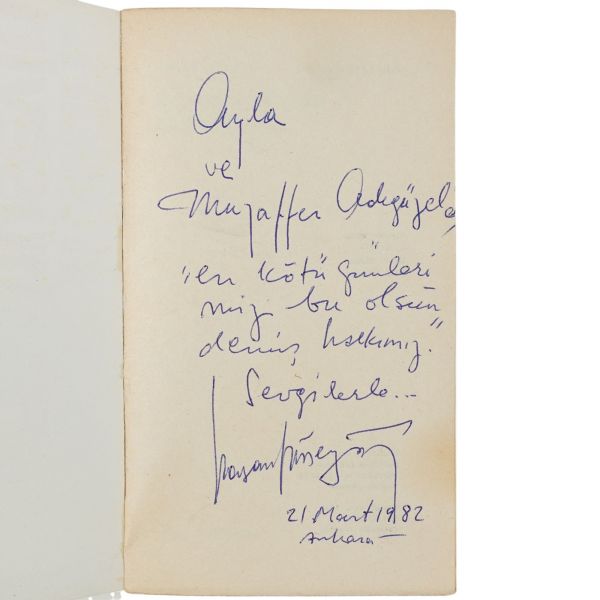 Ayla
ve
Muzaffer Adıgüzel'e,
"en kötü günleri
miz bu olsun
demiş halkımız."
Sevgilerle...
Hasan Hüseyin
21 Mart 1982
Ankara